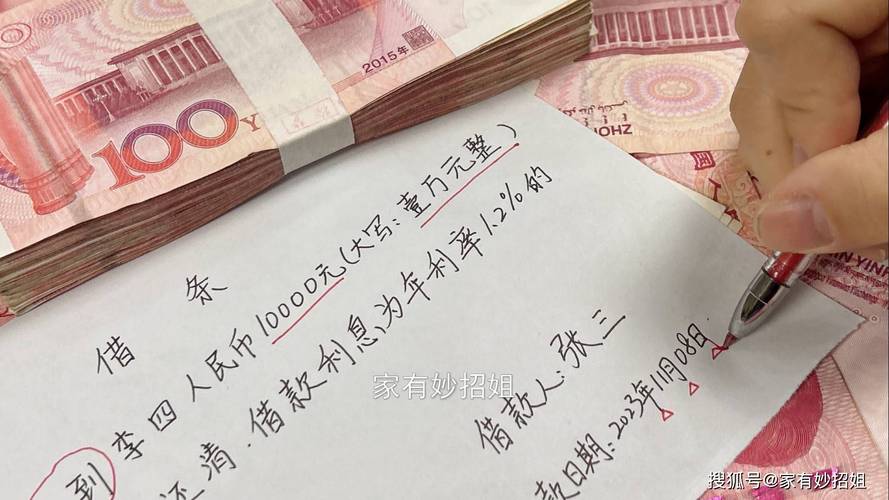 100
2015年
ZHO
YIN
借条
到李四人民币10000元(大写:壹万元整)
还清.借款利息为年利率1.2%的
借款人:张三
款日期:2023年11月08日
家有妙招姐
搜狐号@家有妙招姐